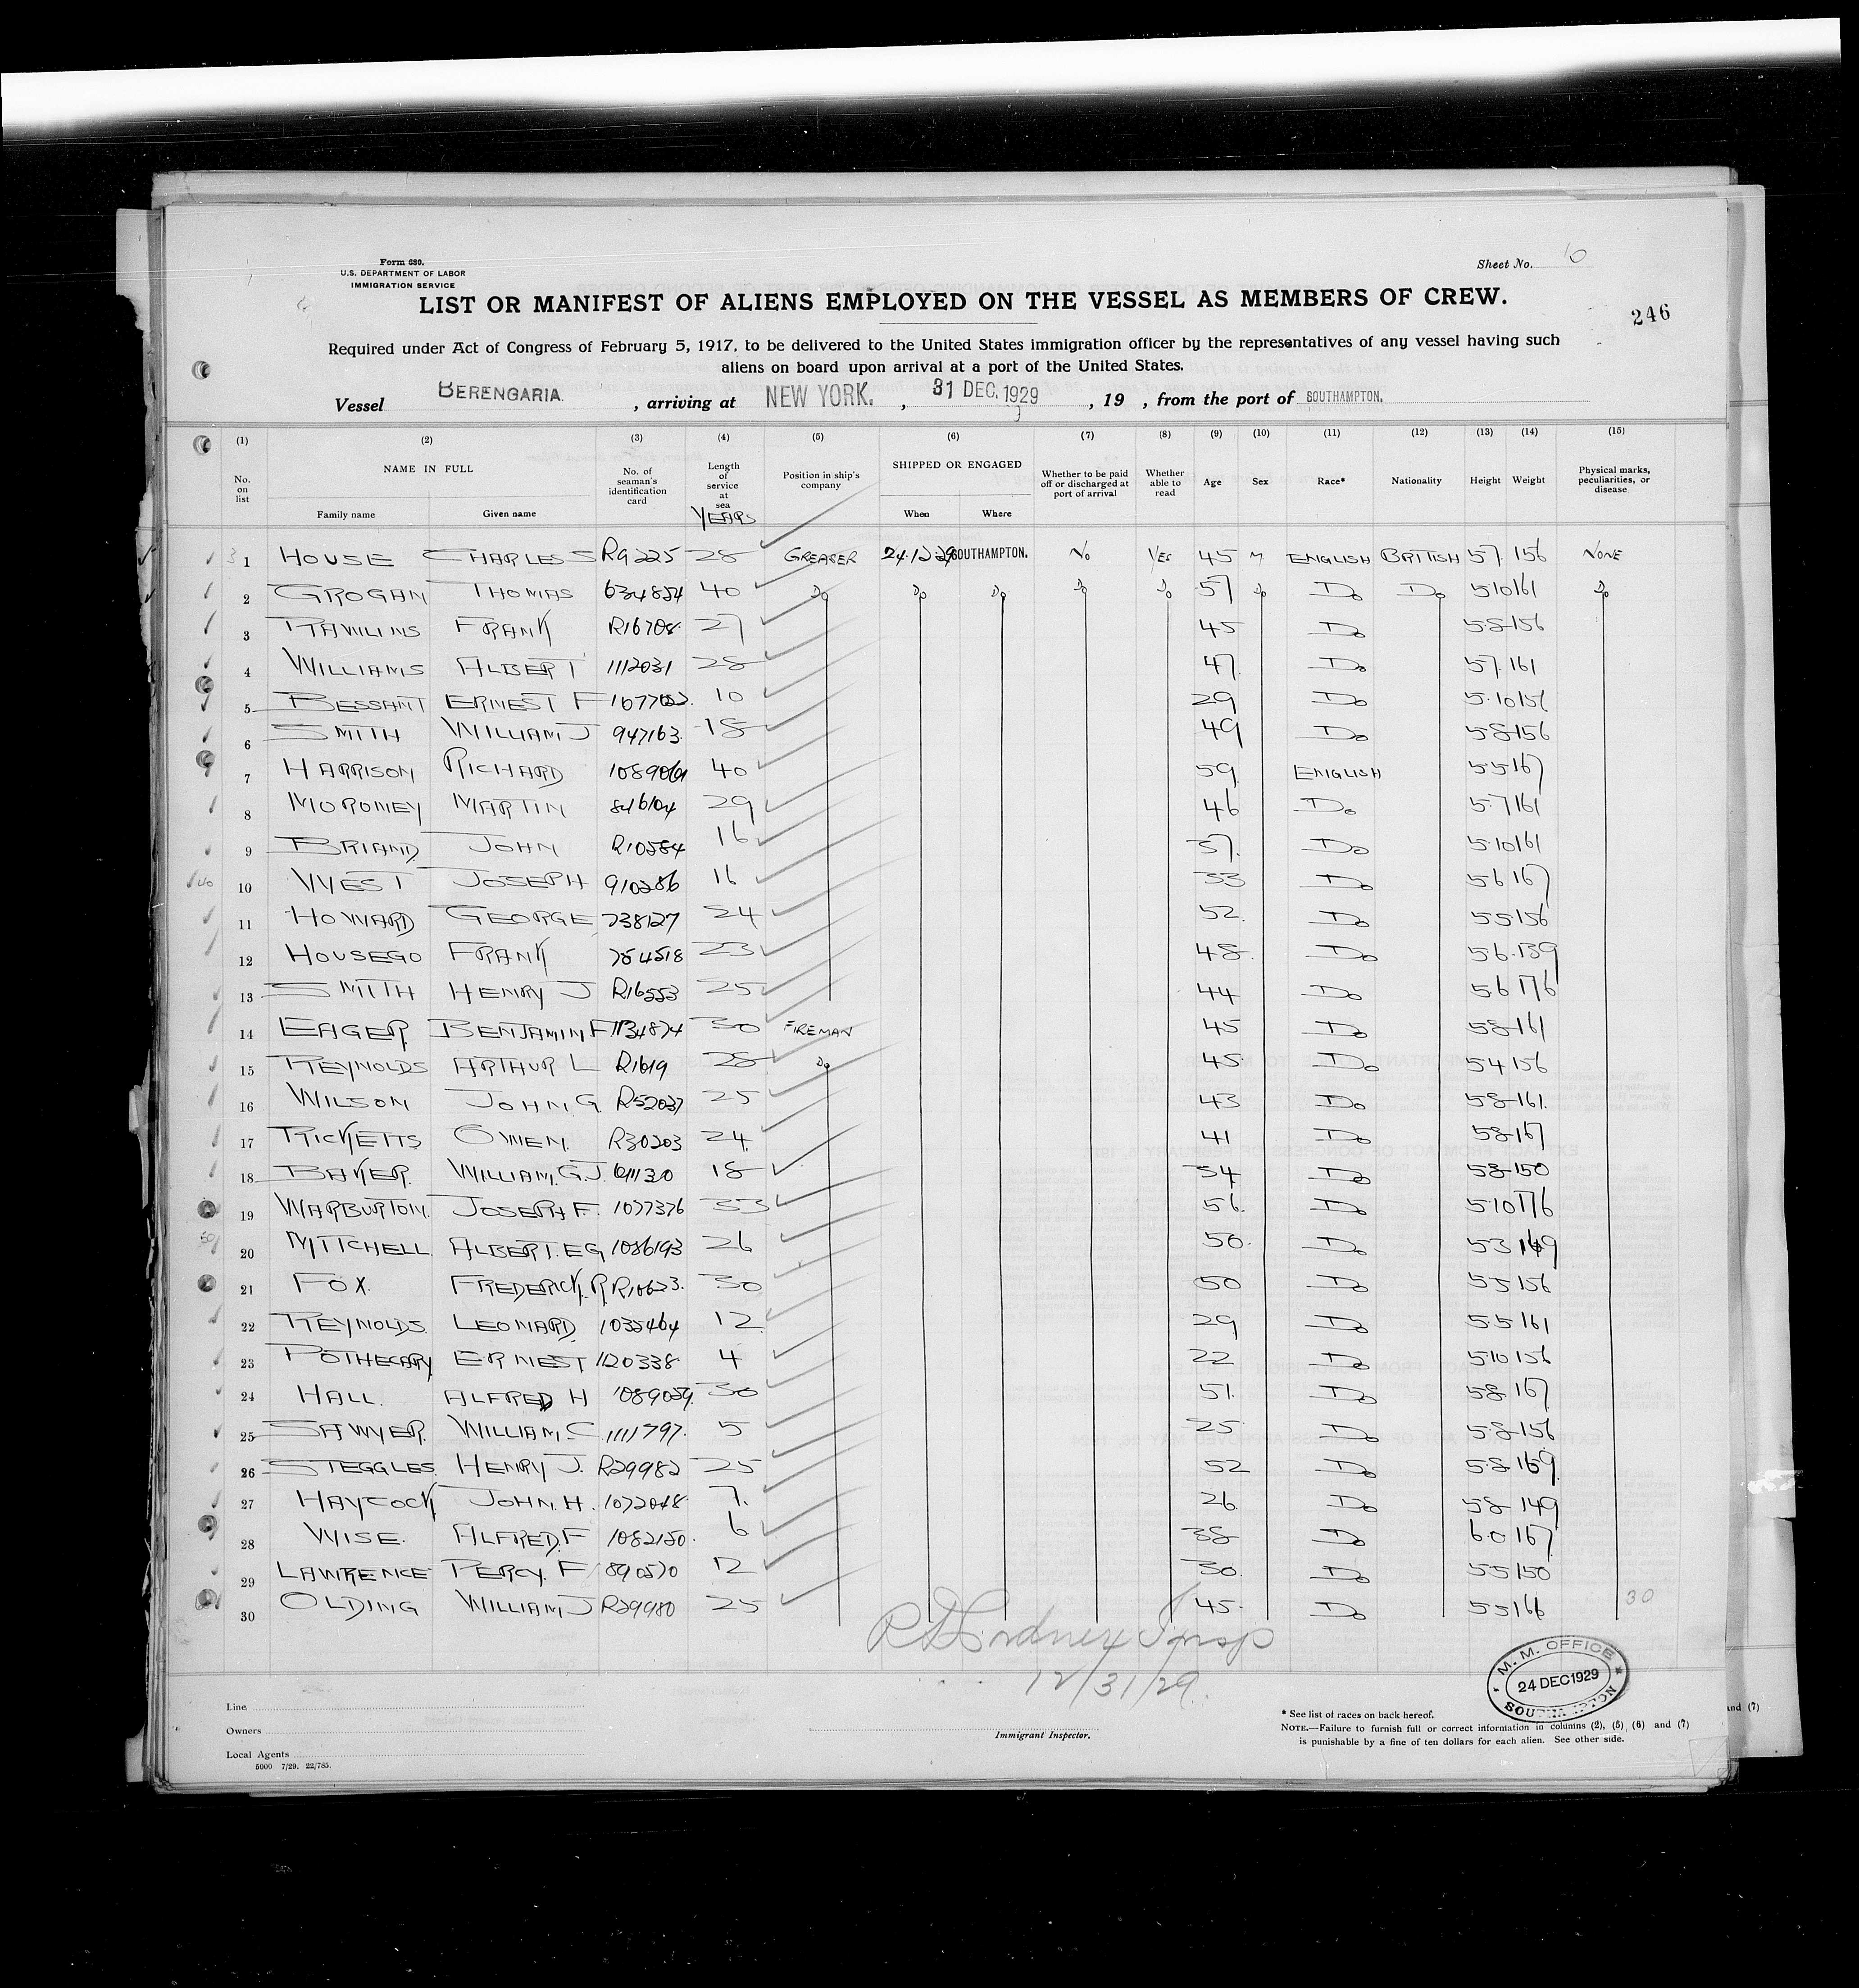 Form 680.
U.S. DEPARTMENT OF LABOR
IMMIGRATION SERVICE
Sheet No. 10
LIST OR MANIFEST OF ALIENS EMPLOYED ON THE VESSEL AS MEMBERS OF CREW.
246
Required under Act of Congress of February 5, 1917, to be delivered to the United States immigration officer by the representatives of any vessel having such
aliens on board upon arrival at a port of the United States.
Vessel BERENGARIA , arriving at NEW YORK. , 31 DEC. 1929 , 19 , from the port of SOUTHAMPTON.
(1) (2) (3) (4) (5) (6) (7) (8) (9) (10) (11) (12) (13) (14) (15)
No. on list NAME IN FULL Family name Given name No. of seaman's identification card Length of service at sea YEARS Position in ship's company SHIPPED OR ENGAGED When Where Whether to be paid off or discharged at port of arrival Whether able to read Age Sex Race* Nationality Height Weight Physical marks, peculiarities, or disease
1 HOUSE CHARLES S R9225 28 GREASER 24.12.29 SOUTHAMPTON. No YES 45 M ENGLISH BRITISH 57 156 NONE
2 GROGAN THOMAS 634854 40 Do Do Do Do Do 57 Do Do Do 510 161 Do
3 RAWLINS FRANK R16708 27 45 Do 58 156
4 WILLIAMS ALBERT 1112031 28 47 Do 57 161
5 BESSANT ERNEST F 10 29 Do 5.10
6 SMITH WILLIAM J 947163 18 49 Do 58 156
7 HARRISON RICHARD 40 59 ENGLISH 55 167
8 MORONEY MARTIN 846104 29 46 Do 57 161
9 BRIAND JOHN R10584 16 37. Do 5.10 161
10 WEST JOSEPH 910286 16 33 Do 56 167
11 HOWARD GEORGE 738127 24 52. Do 55 156
12 HOUSEGO FRANK 784518 23 48. Do 56.139
13 SMITH HENRY J R16553 25 44 Do 56 176
14 EAGER BENJAMIN F 1134874 30 FIREMAN 45 Do 58 161
15 REYNOLDS ARTHUR L R1619 28 Do 45 Do 54 156
16 WILSON JOHN. G. R52037 25 43 Do 58 161.
17 RICKETTS OWEN. R30203 24 41 Do 58 167
18 BAKER. WILLIAM. G.J. 18 34 Do 58 150
19 WARBURTON. JOSEPH F. 1077376 33 56. Do 510 176
20 MITCHELL. ALBERT. E G 1086193 26 50. Do 53 149
21 FOX. FREDERICK. R 30 50 Do 55 156
22 REYNOLDS. LEONARD. 1035464 12 29 Do 55 161
23 POTHECARY ERNEST 1120338 4 22 Do 510 156
24 HALL. ALFRED H 1089059. 30 51. Do 58 167
25 SAWYER. WILLIAM. C. 1111797. 5 25 Do 58 156
26 STEGGLES. HENRY J. R29982 25 52 Do 58 169.
27 HAYCOCK JOHN. H. 1072048 7. 26 Do 58 149
28 WISE. ALFRED. F 1082150. 6 38 Do 6.0 167
29 LAWRENCE PERCY. F 890570 12 30. Do 55 150
30 OLDING WILLIAM J R29980 25 45. Do 55 166
30
12/31/29.
M. M. OFFICE
24 DEC 1929
SOUTHAMPTON
Line
Owners
Local Agents
5000 7/29. 22/785.
Immigrant Inspector.
* See list of races on back hereof.
NOTE.—Failure to furnish full or correct information in columns (2), (5), (6) and (7)
is punishable by a fine of ten dollars for each alien. See other side.
and (7)